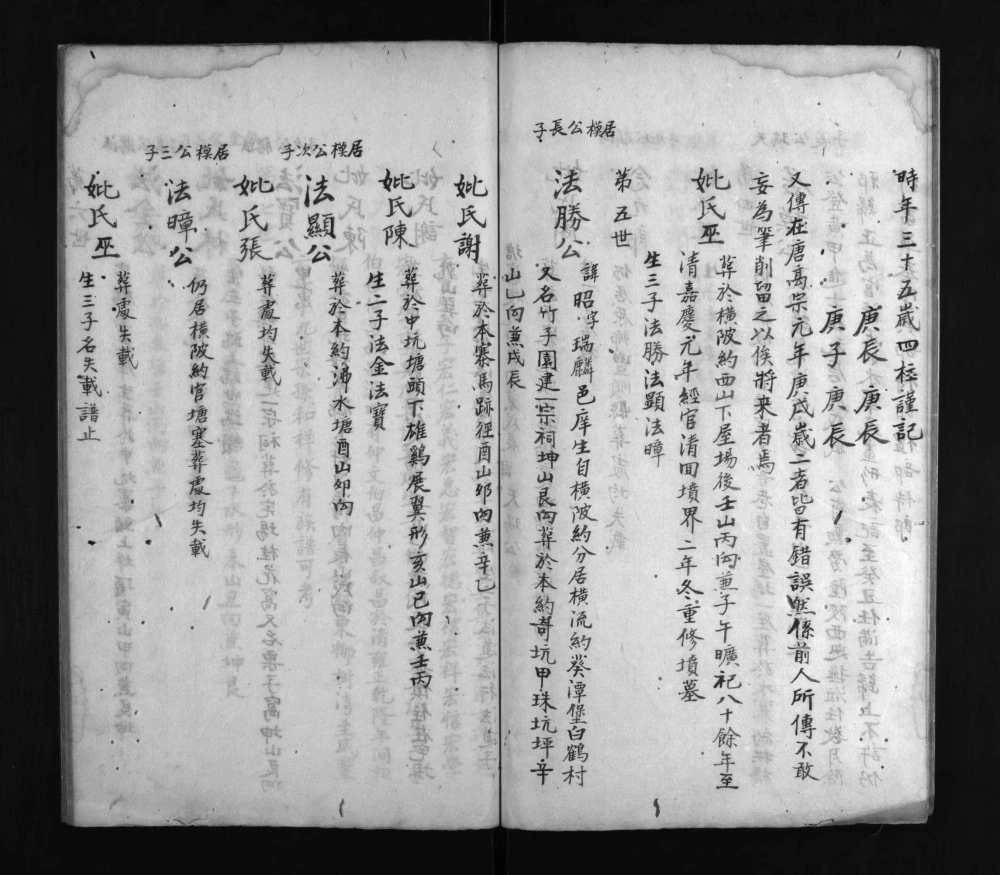 時年三十五歲四柱謹記
庚辰庚辰
庚子庚辰
又傳在唐高宗元年庚戌歲二者皆有錯誤然係前人所傳不敢
妄為筆削留之以俟將來者焉
妣氏巫
葬於橫陂約西山下屋場後壬山丙向兼子午曠祀八十餘年至
清嘉慶元年經官清回墳界二年冬重修墳墓
生三子法勝法顯法暲
第五世
居模公長子
法勝公
諱昭字瑞麟邑庠生自橫陂約分居橫流約葵潭堡白鶴村
又名竹子園建一宗祠坤山艮向葬於本約奇坑甲珠坑坪辛
山乙向兼戌辰
妣氏謝
葬於本寨馬跡徑酉山夘向兼辛乙
妣氏陳
葬於中坑塘頭下雄鷄展翼形亥山巳向兼壬丙
生二子法金法寶
居模公次子
法顯公
葬於本約沸水塘酉山夘向
妣氏張
葬處均失載
居模公三子
法暲公
仍居橫陂約官塘塞葬處均失載
妣氏巫
葬處失載
生三子名失載譜止